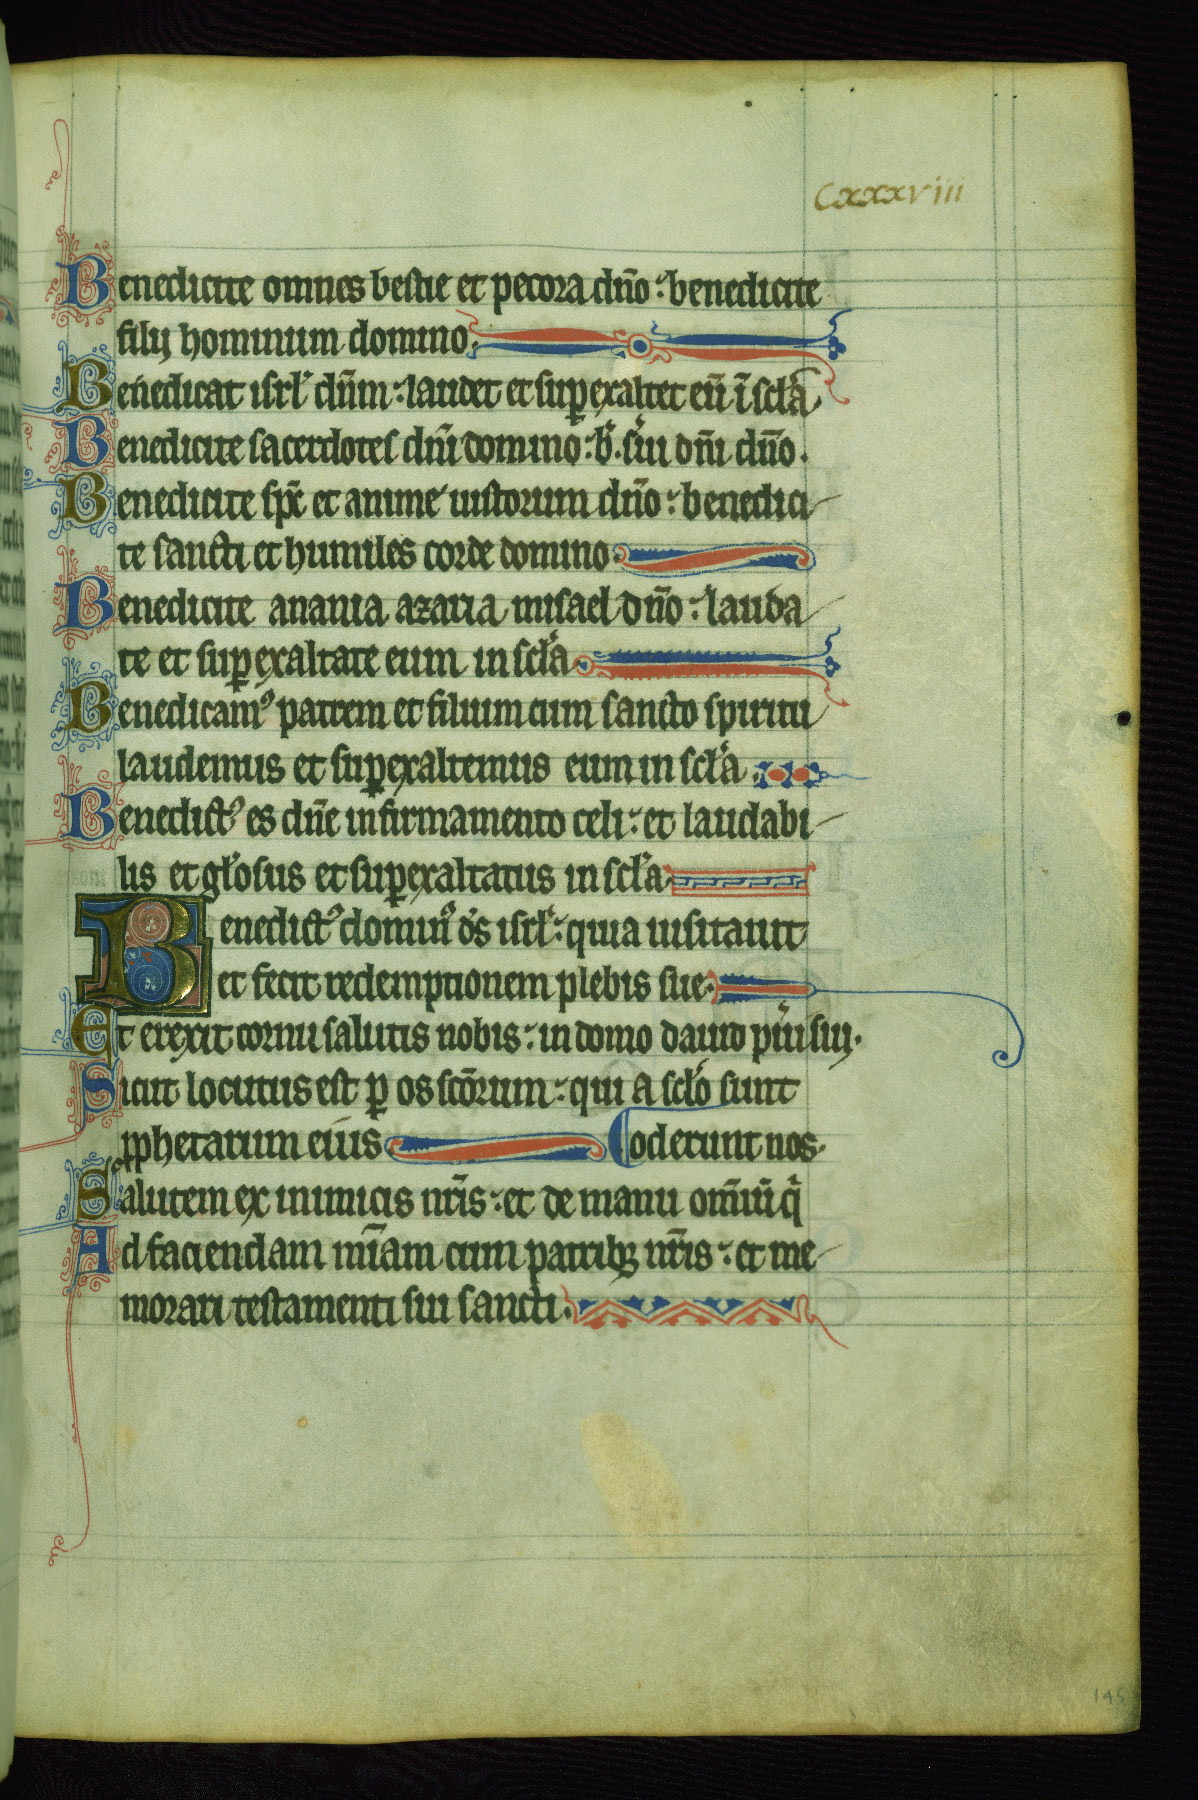 Cxxxviii
Benedicite omnes bestie et pecora dn̄o : benedicite
filij hominum domino.
Benedicat isrl' dn̄m : laudet et sup̲exaltet eū ī scl̄a
Benedicite sacerdotes dn̄i domino : b̄. s̄ui dn̄i dn̄o.
Benedicite sp̄c et anime iustorum dn̄o : benedici
te sancti et humiles corde domino.
Benedicite anania azaria misael dn̄o : lauda
te et sup̲exaltate eum in scl̄a.
Benedicamꝰ patrem et filium cum sancto spiritu
laudemus et sup̲exaltemus eum in scl̄a.
Benedictꝰ es dn̄e in firmamento celi : et laudabi
lis et gl'osus et sup̲exaltatus in scl̄a.
Benedictꝰ dominꝰ d's isrl' : quia uisitauit
et fecit redemptionem plebis sue.
Et erexit cornu salutis nobis : in domo dauid p̄ui sui.
Sicut locutus est p̲ os scōrum : qui a scl'o sunt
ꝓphetarum eius
oderunt nos.
Salutem ex inimicis nr̄is : et de manu om̄iū q̄
Ad faciendam mīam cum patribꝫ nr̄is : et me
morari testamenti sui sancti.
145